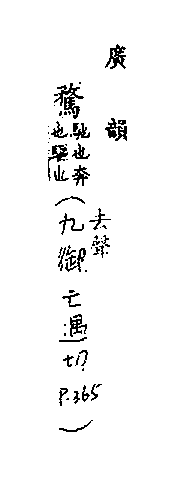 廣韻
騖馳也奔也驅也(去聲九御亡遇切P.365)